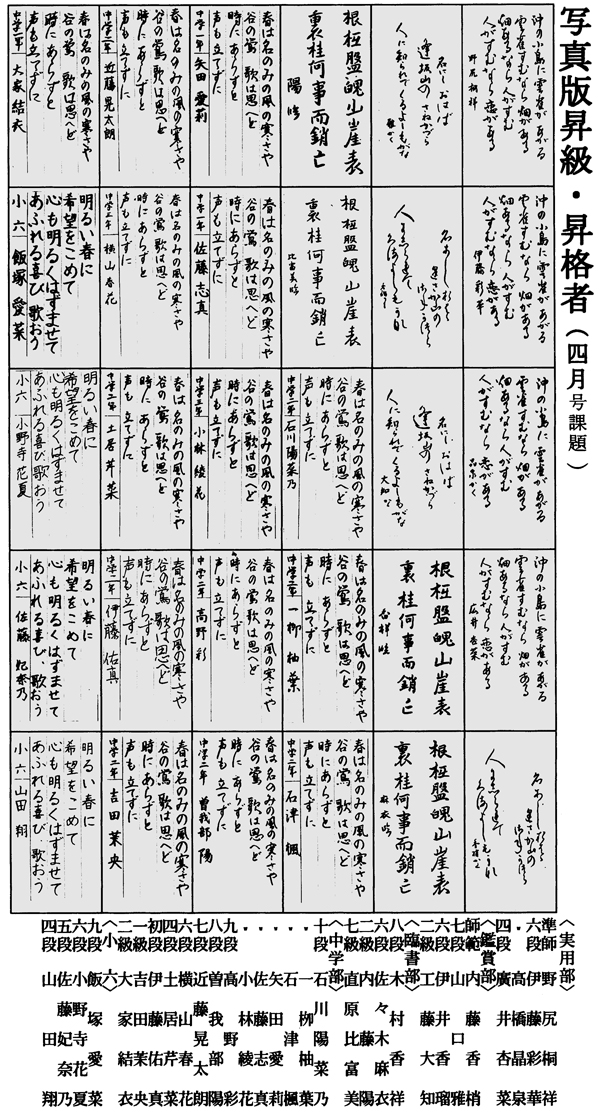 写真版昇級・昇格者（四月号課題）
沖の小島に雲雀があがる
雲雀すむなら畑がある
畑あるなら人がすむ
人がすむなら恋がある
野尻桐祥
名にしおはば
逢坂山のさねかづら
人に知られでくるよしもがな
根柢盤魄山崖表
裏桂何事而銷亡
陽臨
春は名のみの風の寒さや
谷の鶯歌は思へど
時にあらずと
声も立てずに
中学一年 矢田愛莉
春は名のみの風の寒さや
谷の鶯歌は思へど
時にあらずと
声も立てずに
中学三年 近藤晃太朗
春は名のみの風の寒さや
谷の鶯歌は思へど
時にあらずと
声も立てずに
中学二年 大家結衣
沖の小島に雲雀があがる
雲雀すむなら畑がある
畑あるなら人がすむ
人がすむなら恋がある
伊藤彩華
根柢盤魄山崖表
裏桂何事而銷亡
比富美臨
春は名のみの風の寒さや
谷の鶯歌は思へど
時にあらずと
声も立てずに
中学一年 佐藤志真
春は名のみの風の寒さや
谷の鶯歌は思へど
時にあらずと
声も立てずに
横山春花
明るい春に
希望をこめて
心も明るくはずませて
あふれる喜び歌おう
小六 飯塚愛菜
沖の小島に雲雀があがる
雲雀すむなら畑がある
畑あるなら人がすむ
人がすむなら恋がある
名にしおはば
逢坂山のさねかづら
人に知られでくるよしもがな
春は名のみの風の寒さや
谷の鶯歌は思へど
時にあらずと
声も立てずに
中学二年 石川陽菜乃
春は名のみの風の寒さや
谷の鶯歌は思へど
時にあらずと
声も立てずに
小林綾花
春は名のみの風の寒さや
谷の鶯歌は思へど
時にあらずと
声も立てずに
中学二年 土居芹菜
明るい春に
希望をこめて
心も明るくはずませて
あふれる喜び歌おう
小六 小野寺花夏
沖の小島に雲雀があがる
雲雀すむなら畑がある
畑あるなら人がすむ
人がすむなら恋がある
広井杏菜
根柢盤魄山崖表
裏桂何事而銷亡
香祥臨
春は名のみの風の寒さや
谷の鶯歌は思へど
時にあらずと
声も立てずに
一柳柚葉
春は名のみの風の寒さや
谷の鶯歌は思へど
時にあらずと
声も立てずに
高野彩
春は名のみの風の寒さや
谷の鶯歌は思へど
時にあらずと
声も立てずに
伊藤佑真
明るい春に
希望をこめて
心も明るくはずませて
あふれる喜び、歌おう
小六 佐藤妃奈乃
根柢盤魄山崖表
裏桂何事而銷亡
麻衣臨
春は名のみの風の寒さや
谷の鶯歌は思へど
時にあらずと
声も立てずに
中学二年 石津楓
春は名のみの風の寒さや
谷の鶯歌は思へど
時にあらずと
声も立てずに
中学二年 曽我部陽
春は名のみの風の寒さや
谷の鶯歌は思へど
時にあらずと
声も立てずに
中学二年 吉田茉央
明るい春に
希望をこめて
心も明るくはずませて
あふれる喜び歌おう
小六 山田翔
〈実用部〉
準師 野尻桐祥
六段 伊藤彩華
高橋晶泉
四段 廣井杏菜
〈鑑賞部〉
師範 内藤香梢
七段 山口雅
六段
二級 工藤大知
〈臨書部〉
八段 木村香祥
六段 佐々木麻衣
二級 内藤陽
七級 直原比富美
〈中学部〉
十段 石川陽菜乃
〃 一柳柚葉
〃 石津楓
〃 矢田愛莉
〃 佐藤志真
〃 小林綾花
九段 高野彩
八段 曽我部陽
七段 近藤晃太朗
六段 横山春花
四段 土居芹菜
初段 伊藤佑真
一級 吉田茉央
二級 大家結衣
〈小六〉
九段 飯塚愛菜
六段 小野寺花夏
五段 佐藤妃奈乃
四段 山田翔